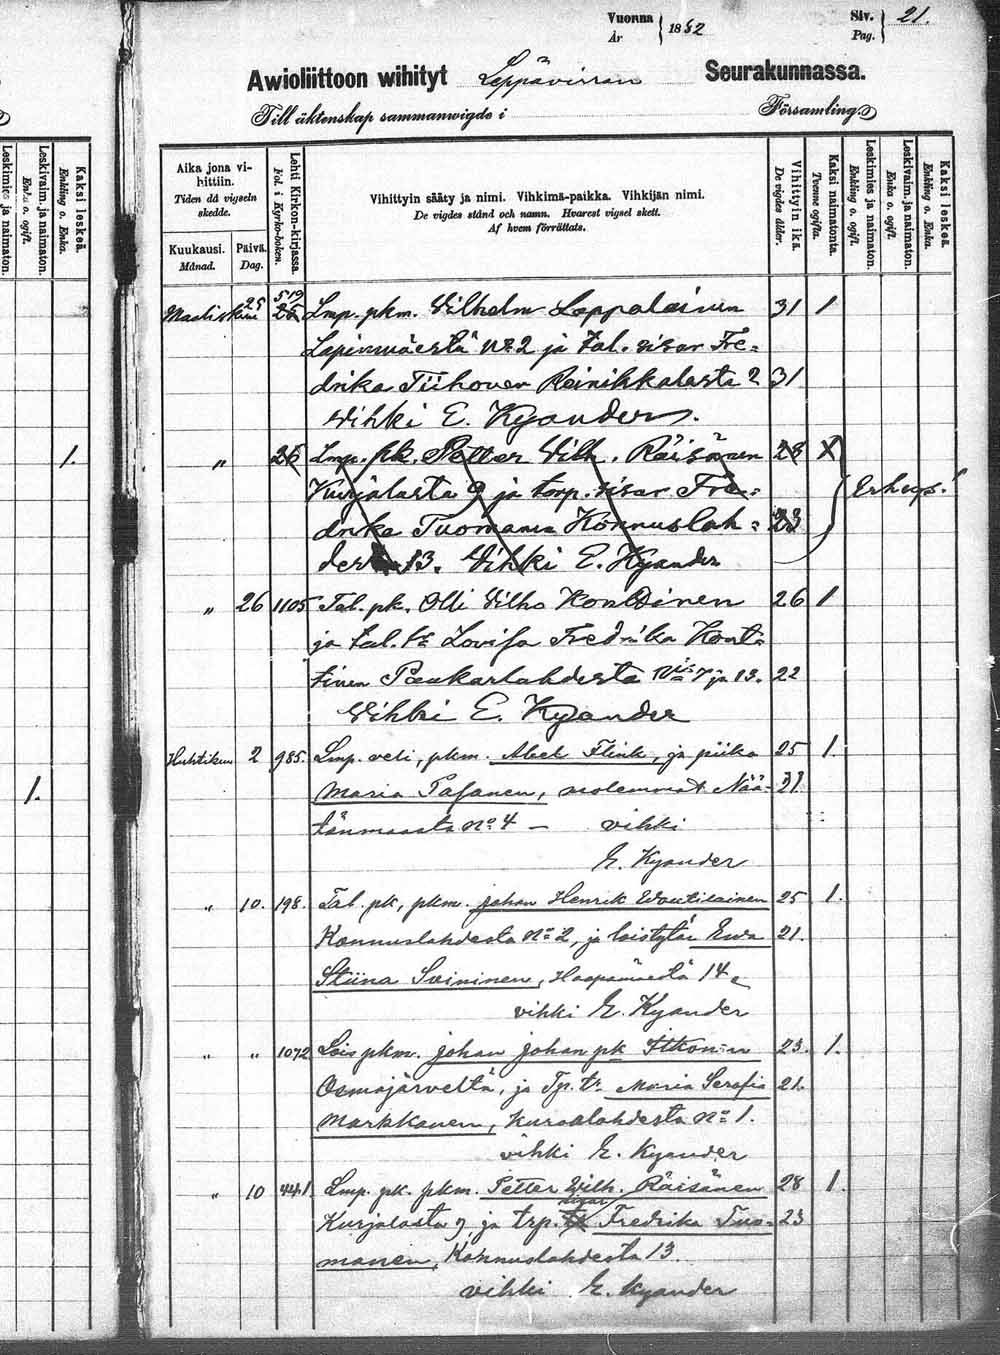 Vuonna
År
1882
Siv.
Pag.
21.
Awioliittoon wihityt Leppävirran Seurakunnassa.
Till äktenskap sammanwigde i Församling.
Leskimies ja naimaton.
Leskivaim. ja naimaton.
Enka o. ogift.
Kaksi leskeä.
Enkling o. Enka.
Aika jona vihittiin.
Tiden då vigseln skedde.
Kuukausi.
Månad.
Päivä.
Dag.
Lehti Kirkon-kirjassa.
Fol. i Kyrko-boken.
Vihittyin sääty ja nimi. Vihkimä-paikka. Vihkijän nimi.
De vigdes stånd och namn. Hvarest vigsel skett.
Af hvem förrättats.
Vihittyin ikä.
De vigdes ålder.
Kaksi naimatonta.
Tvenne ogifta.
Leskimies ja naimaton.
Enkling o. ogift.
Leskivaim. ja naimaton.
Enka o. ogift.
Kaksi leskeä.
Enkling o. Enka.
Maalisk. 25 519 26 Lmp. pkm. Vilhelm Lappalainen 31 1
Lapinmäestä No 2 ja tal. sisar Fre=
drika Tiihonen Reinikkalasta 2 31
Vihki E. Kyander.
1. " 26 Lmp. pk. Petter Vilh. Räisänen 28
Kurjalasta 9 ja torp. sisar Fre=
drika Tuomanen Konnuslah= 23
desta 13. Vihki E. Kyander
" 26 1105 Tal. pk. Olli Vilho Konttinen 26 1
ja tal. tr Lovisa Fredrika Kont=
tinen Paukarlahdesta No 7 ja 13. 22
Vihki E. Kyander
Huhtikuu 2 985. Lmp. veli, pkm. Abel Flink, ja piika 25 1.
1. Maria Pasanen, molemmat Nää=
tänmaasta No 4 – vihki
E. Kyander
" 10. 198. Tal. pk, pkm. Johan Henrik Woutilainen 25 1.
Konnuslahdesta No 2, ja loistytär Ewa 21.
Stiina Soininen, Haapamäestä 14
vihki E. Kyander
" " 1072 Lois pkm. Johan Johan pk Itkonen 23. 1.
Osmajärveltä, ja Tp. tr. Maria Serafia 21.
Markkanen, Kurolahdesta No 1.
vihki E. Kyander
" 10 441. Lmp. pk. pkm. Petter Wilh. Räisänen 28 1.
sisar
Kurjalasta 9 ja trp. Fredrika Tuo= 23
manen, Konnuslahdesta 13.
vihki E. Kyander